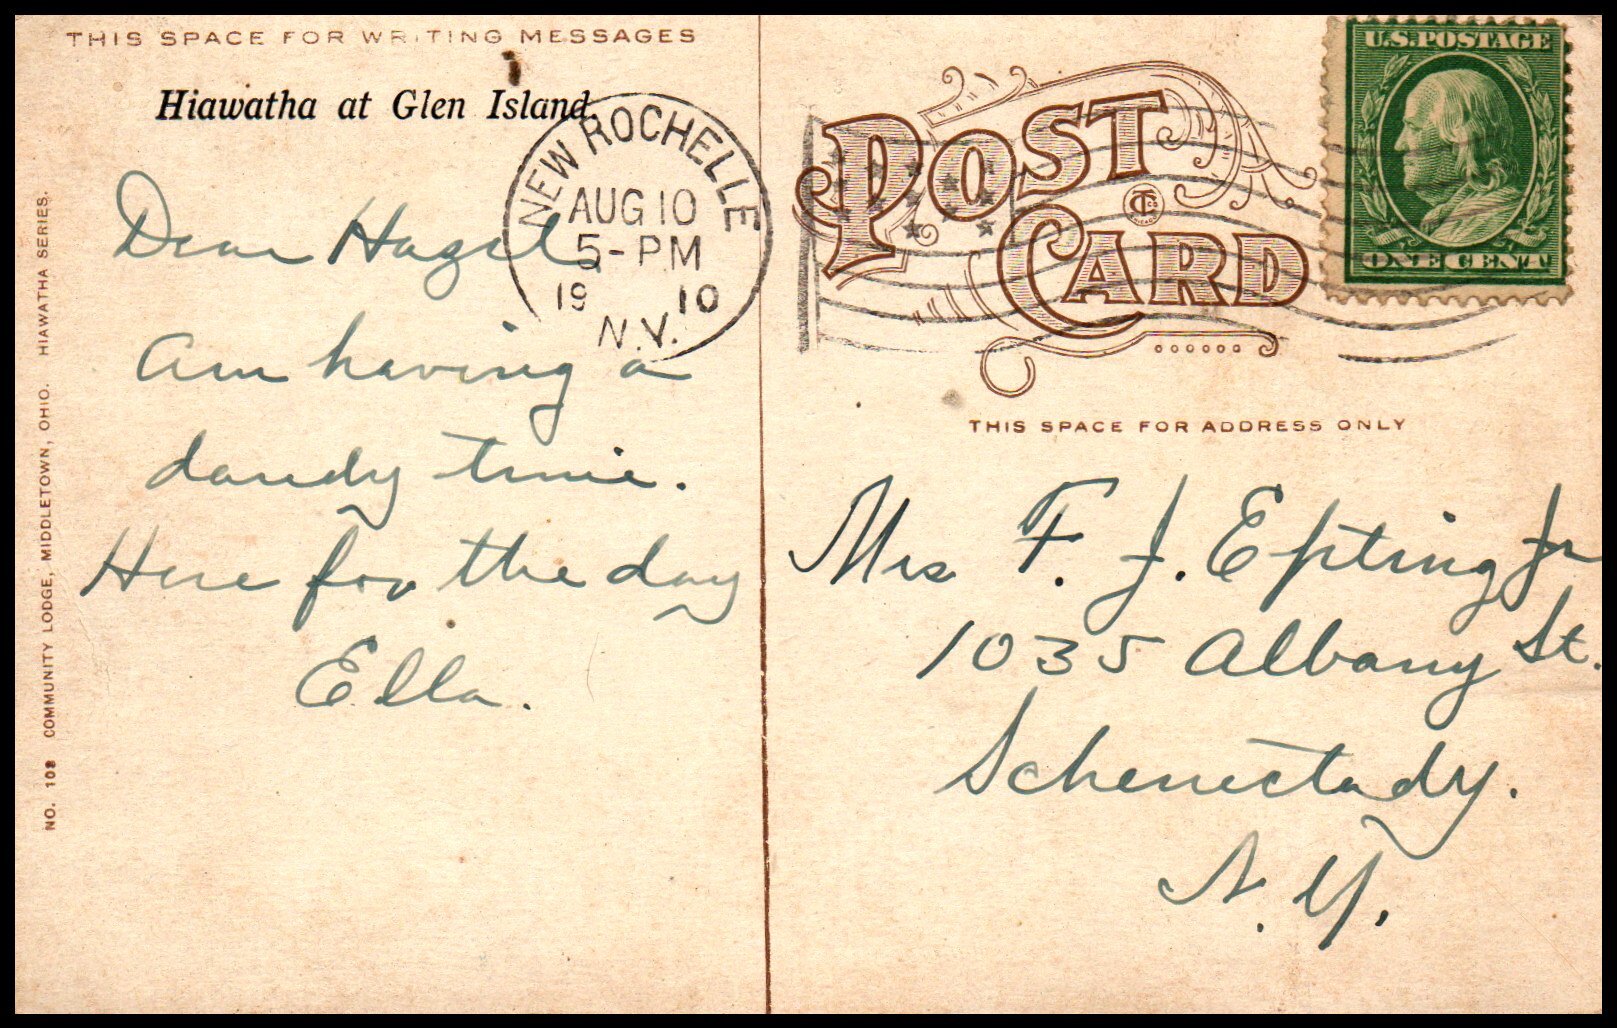 THIS SPACE FOR WRITING MESSAGES
Hiawatha at Glen Island.
NEW ROCHELLE
AUG 10
5-PM
19 10
N.Y.
Dear Hazel
Am having a
dandy time.
Here for the day
Ella.
NO. 108 COMMUNITY LODGE, MIDDLETOWN, OHIO. HIAWATHA SERIES.
U.S. POSTAGE
ONE CENT
POST
CARD
THIS SPACE FOR ADDRESS ONLY
Mrs F. J. Epting Jr
1035 Albany St.
Schenectady.
N.Y.